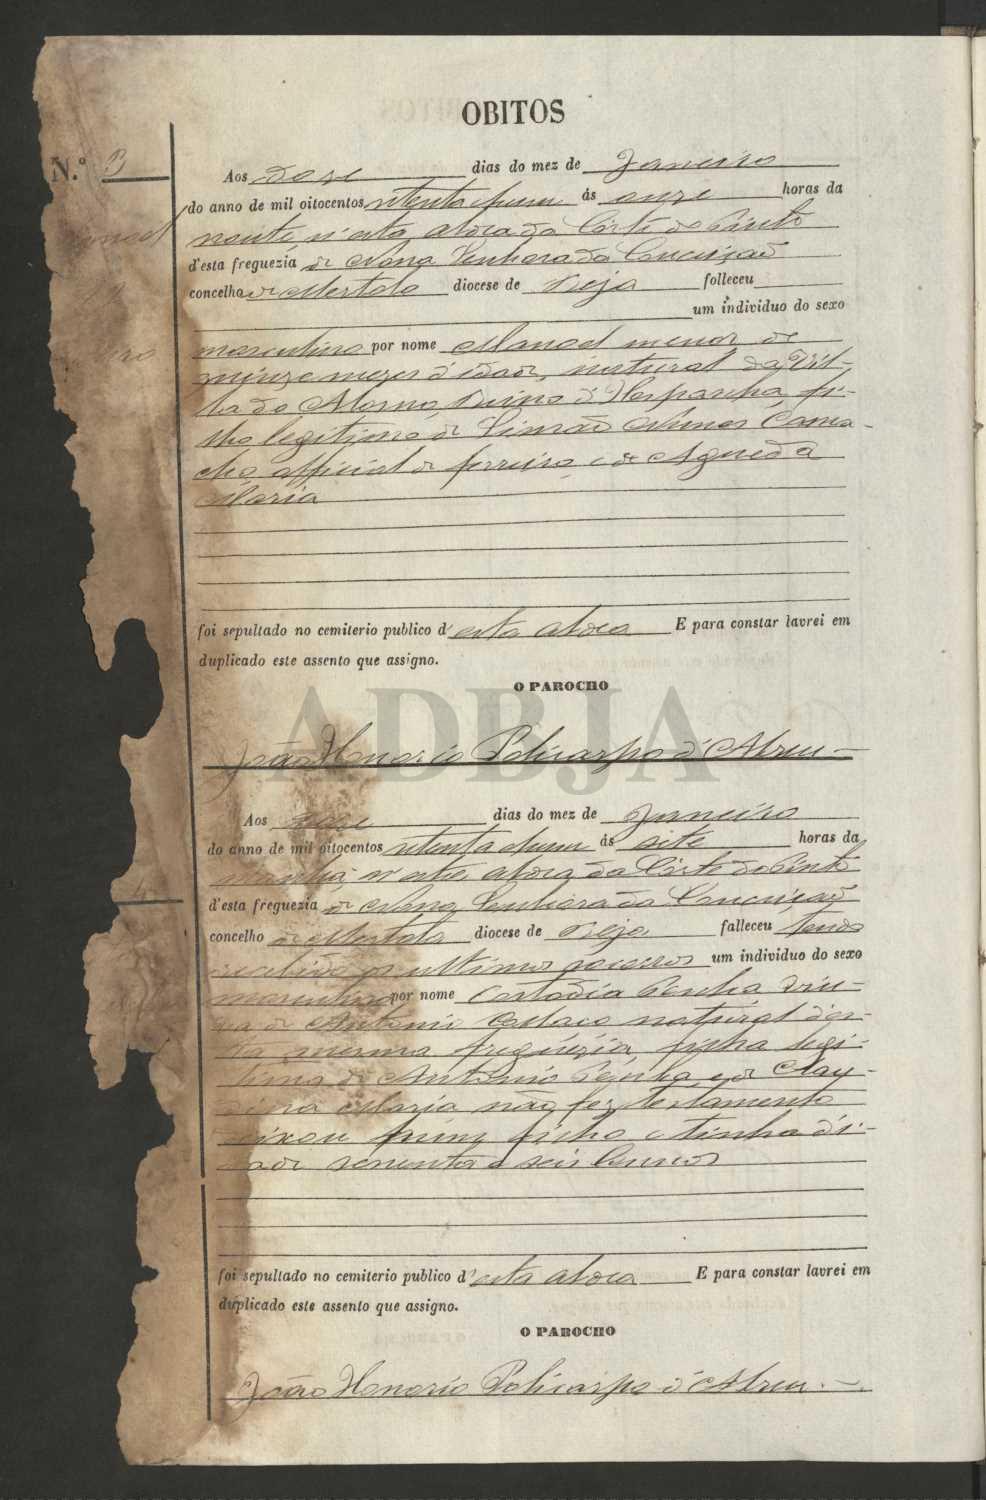 OBITOS
N.º 3
Aos dose dias do mez de Janeiro
do anno de mil oitocentos setenta e hum ás onze horas da
noute, n'esta aldea da Côrte do Pinto
d'esta freguezia de Nossa Senhora da Conceição
concelho de Mertola diocese de Beja falleceu
um individuo do sexo
masculino por nome Manoel menor de
quinze mezes d'idade, natural da Vil-
la do Alosno, Reino d'Hespanha, fi-
lho legitimo de Simão Nunes Cama-
cho, official de ferreiro, e de Agueda
Maria
foi sepultado no cemiterio publico d'esta aldea E para constar lavrei em
duplicado este assento que assigno.
O PAROCHO
ADBJA
João Honorio Policarpo d'Abreu
4
Aos dose dias do mez de Janeiro
do anno de mil oitocentos setenta e hum ás sete horas da
manhã, n'esta aldea da Côrte do Pinto
d'esta freguezia de Nossa Senhora da Conceição
concelho de Mertola diocese de Beja falleceu tendo
recebido os ultimos socorros um individuo do sexo
masculino por nome Custodia Penha viu-
va de Antonio Collaço natural des-
ta mesma freguezia, filha legi-
tima de Antonio Penha e de Clau-
dina Maria não fez testamento
deixou hum filho e tinha di-
dade sessenta e seis annos
foi sepultado no cemiterio publico d'esta aldea E para constar lavrei em
duplicado este assento que assigno.
O PAROCHO
João Honorio Policarpo d'Abreu